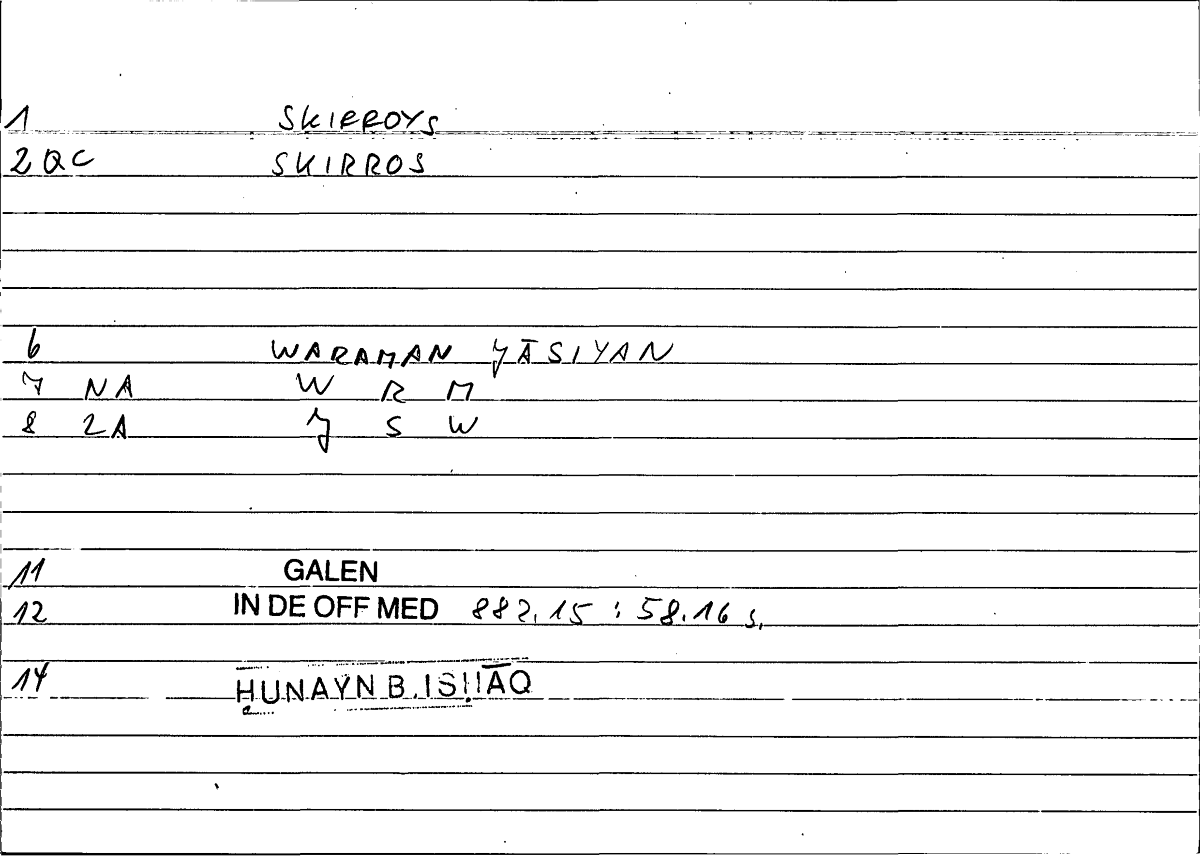 1 SKIRROYS
2 QC SKIRROS
6 WARAMAN JĀSIYAN
7 NA W R M
8 ZA J S W
11 GALEN
12 IN DE OFF MED 882.15 : 58.16 s.
14 ḤUNAYN B. ISḤĀQ